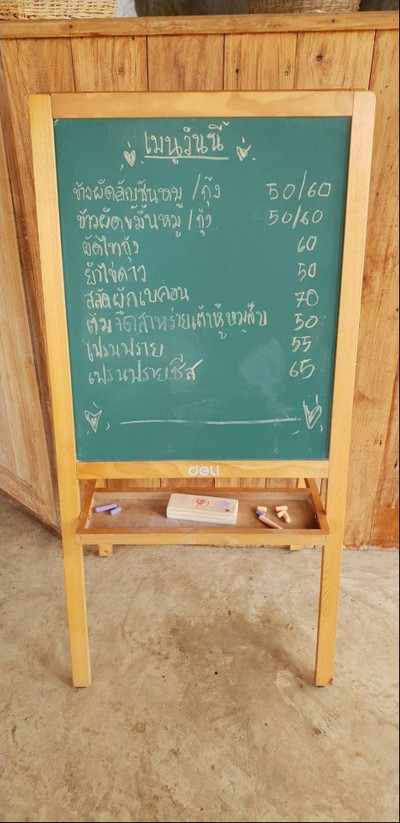 เมนูวันนี้
ข้าวผัดอัญชันหมู/กุ้ง 50/60
ข้าวผัดขมิ้นหมู/กุ้ง 50/60
ผัดไทกุ้ง 60
ยำไข่ดาว 50
สลัดผักเบคอน 70
ต้มจืดสาหร่ายเต้าหู้หมูสับ 50
เฟรนฟราย 55
เฟรนฟรายชีส 65
deli